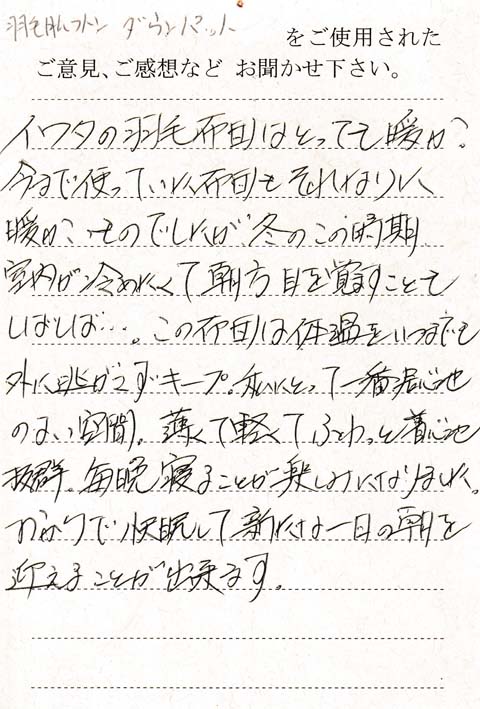 羽毛肌フトン ダウンパット
をご使用された
ご意見、ご感想など お聞かせ下さい。
イワタの羽毛布団はとっても暖か?
今まで使っていた布団もそれなりに
暖かいものでしたが冬のこの時期
室内が冷めたくて朝方目を覚すことも
しばしば…。この布団は体温をいつまでも
外に逃がさずキープ。私にとって一番居心地
のよい空間。薄くて軽くてふわっと着心地
抜群。毎晩寝ることが楽しみになりました。
おかげで快眠して新たな一日の朝を
迎えることが出来ます。